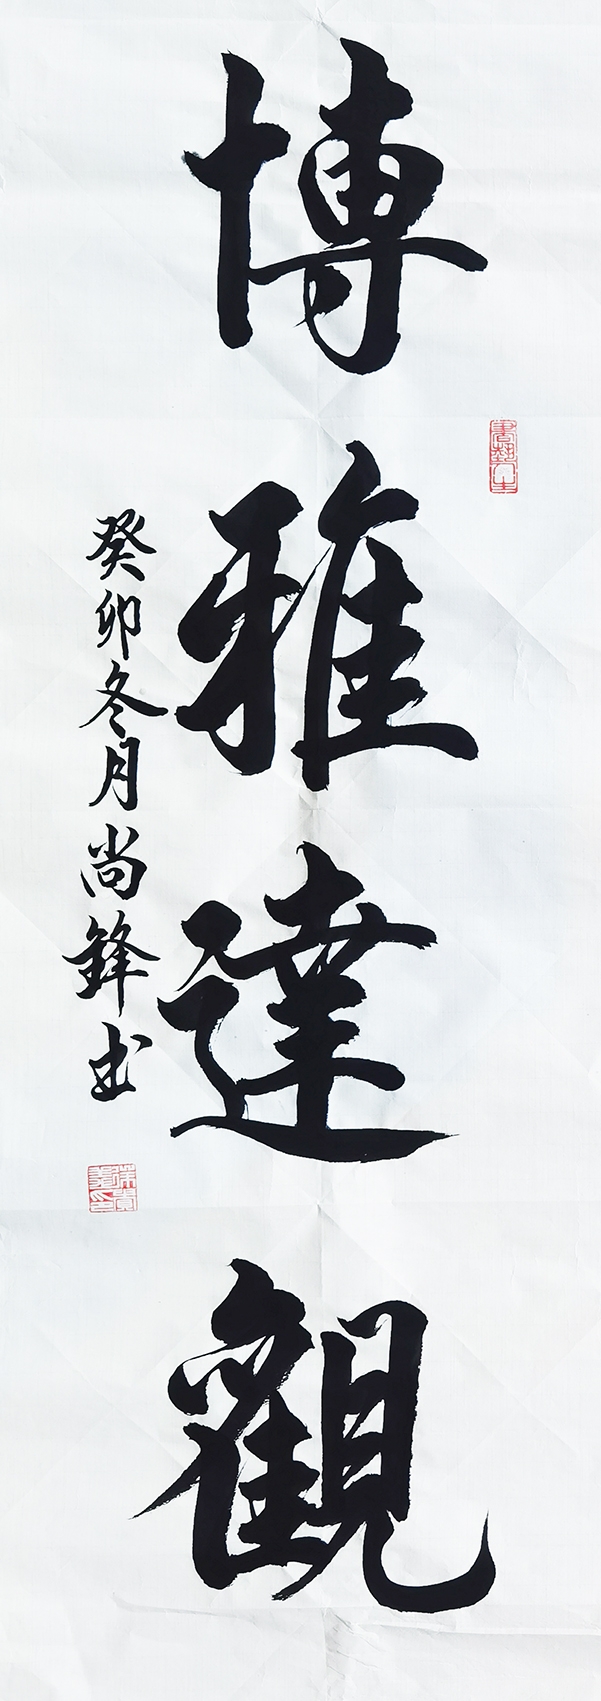 博雅達觀
癸卯冬月尚鋒书